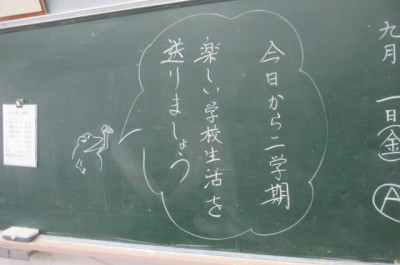 九月一日(金)
A
今日から二学期
楽しい学校生活を
送りましょう